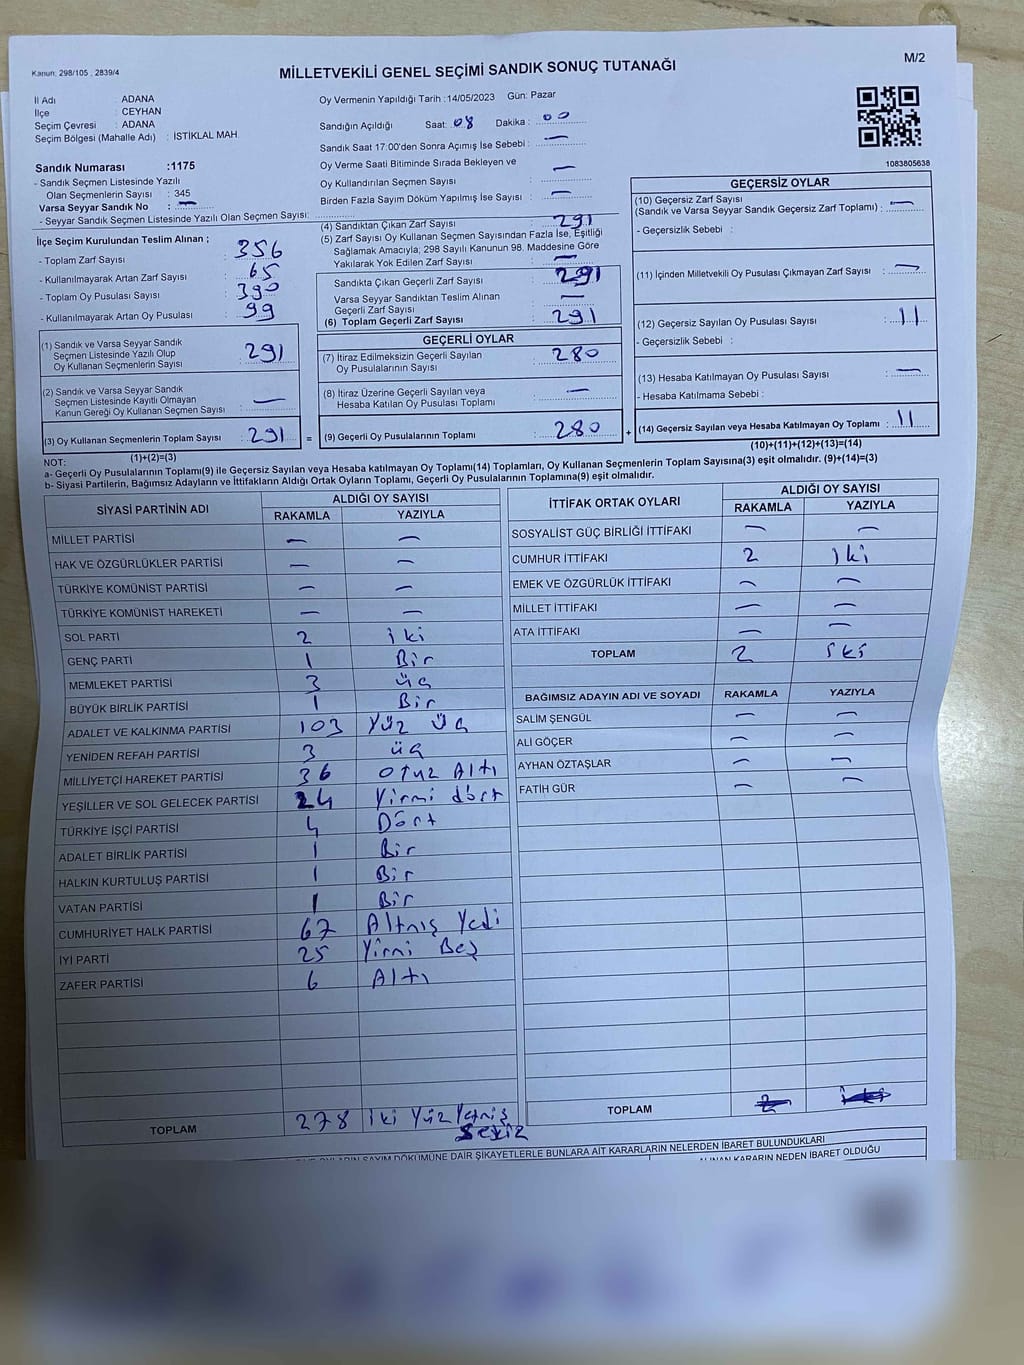 Kanun: 298/105 , 2839/4
MİLLETVEKİLİ GENEL SEÇİMİ SANDIK SONUÇ TUTANAĞI
M/2
İl Adı : ADANA
İlçe : CEYHAN
Seçim Çevresi : ADANA
Seçim Bölgesi (Mahalle Adı) : İSTİKLAL MAH.
Sandık Numarası :1175
- Sandık Seçmen Listesinde Yazılı
Olan Seçmenlerin Sayısı : 345
Varsa Seyyar Sandık No : —
- Seyyar Sandık Seçmen Listesinde Yazılı Olan Seçmen Sayısı:
Oy Vermenin Yapıldığı Tarih :14/05/2023 Gün: Pazar
Sandığın Açıldığı Saat: 08 Dakika : 00
Sandık Saat 17:00'den Sonra Açımış İse Sebebi : —
Oy Verme Saati Bitiminde Sırada Bekleyen ve
Oy Kullandırılan Seçmen Sayısı : —
Birden Fazla Sayım Döküm Yapılmış İse Sayısı : —
1083805638
İlçe Seçim Kurulundan Teslim Alınan ;
- Toplam Zarf Sayısı : 356
- Kullanılmayarak Artan Zarf Sayısı : 65
- Toplam Oy Pusulası Sayısı : 390
- Kullanılmayarak Artan Oy Pusulası : 99
(1) Sandık ve Varsa Seyyar Sandık
Seçmen Listesinde Yazılı Olup
Oy Kullanan Seçmenlerin Sayısı : 291
(2) Sandık ve Varsa Seyyar Sandık
Seçmen Listesinde Kayıtlı Olmayan
Kanun Gereği Oy Kullanan Seçmen Sayısı : —
(3) Oy Kullanan Seçmenlerin Toplam Sayısı : 291
(1)+(2)=(3)
(4) Sandıktan Çıkan Zarf Sayısı : 291
(5) Zarf Sayısı Oy Kullanan Seçmen Sayısından Fazla İse, Eşitliği
Sağlamak Amacıyla; 298 Sayılı Kanunun 98. Maddesine Göre
Yakılarak Yok Edilen Zarf Sayısı : —
Sandıkta Çıkan Geçerli Zarf Sayısı : 291
Varsa Seyyar Sandıktan Teslim Alınan
Geçerli Zarf Sayısı : —
(6) Toplam Geçerli Zarf Sayısı : 291
GEÇERLİ OYLAR
(7) İtiraz Edilmeksizin Geçerli Sayılan
Oy Pusulalarının Sayısı : 280
(8) İtiraz Üzerine Geçerli Sayılan veya
Hesaba Katılan Oy Pusulası Toplamı : —
= (9) Geçerli Oy Pusulalarının Toplamı : 280 +
GEÇERSİZ OYLAR
(10) Geçersiz Zarf Sayısı
(Sandık ve Varsa Seyyar Sandık Geçersiz Zarf Toplamı) : —
- Geçersizlik Sebebi :
(11) İçinden Milletvekili Oy Pusulası Çıkmayan Zarf Sayısı : —
(12) Geçersiz Sayılan Oy Pusulası Sayısı : 11
- Geçersizlik Sebebi :
(13) Hesaba Katılmayan Oy Pusulası Sayısı : —
- Hesaba Katılmama Sebebi :
(14) Geçersiz Sayılan veya Hesaba Katılmayan Oy Toplamı : 11
(10)+(11)+(12)+(13)=(14)
NOT:
a- Geçerli Oy Pusulalarının Toplamı(9) ile Geçersiz Sayılan veya Hesaba katılmayan Oy Toplamı(14) Toplamları, Oy Kullanan Seçmenlerin Toplam Sayısına(3) eşit olmalıdır. (9)+(14)=(3)
b- Siyasi Partilerin, Bağımsız Adayların ve İttifakların Aldığı Ortak Oyların Toplamı, Geçerli Oy Pusulalarının Toplamına(9) eşit olmalıdır.
SİYASİ PARTİNİN ADI ALDIĞI OY SAYISI
RAKAMLA YAZIYLA
MİLLET PARTİSİ — —
HAK VE ÖZGÜRLÜKLER PARTİSİ — —
TÜRKİYE KOMÜNİST PARTİSİ — —
TÜRKİYE KOMÜNİST HAREKETİ — —
SOL PARTİ 2 iki
GENÇ PARTİ 1 Bir
MEMLEKET PARTİSİ 3 üç
BÜYÜK BİRLİK PARTİSİ 1 Bir
ADALET VE KALKINMA PARTİSİ 103 Yüz Üç
YENİDEN REFAH PARTİSİ 3 üç
MİLLİYETÇİ HAREKET PARTİSİ 36 Otuz Altı
YEŞİLLER VE SOL GELECEK PARTİSİ 24 Yirmi dört
TÜRKİYE İŞÇİ PARTİSİ 4 Dört
ADALET BİRLİK PARTİSİ 1 Bir
HALKIN KURTULUŞ PARTİSİ 1 Bir
VATAN PARTİSİ 1 Bir
CUMHURİYET HALK PARTİSİ 67 Altmış Yedi
İYİ PARTİ 25 Yirmi Beş
ZAFER PARTİSİ 6 Altı
TOPLAM 278 iki Yüz Yetmiş
Sekiz
İTTİFAK ORTAK OYLARI ALDIĞI OY SAYISI
RAKAMLA YAZIYLA
SOSYALİST GÜÇ BİRLİĞİ İTTİFAKI — —
CUMHUR İTTİFAKI 2 iki
EMEK VE ÖZGÜRLÜK İTTİFAKI — —
MİLLET İTTİFAKI — —
ATA İTTİFAKI — —
TOPLAM 2 iki
BAĞIMSIZ ADAYIN ADI VE SOYADI RAKAMLA YAZIYLA
SALİM ŞENGÜL — —
ALİ GÖÇER — —
AYHAN ÖZTAŞLAR — —
FATİH GÜR — —
TOPLAM 2 iki
OYLARIN SAYIM DÖKÜMÜNE DAİR ŞİKAYETLERLE BUNLARA AİT KARARLARIN NELERDEN İBARET BULUNDUKLARI
ALINAN KARARIN NEDEN İBARET OLDUĞU